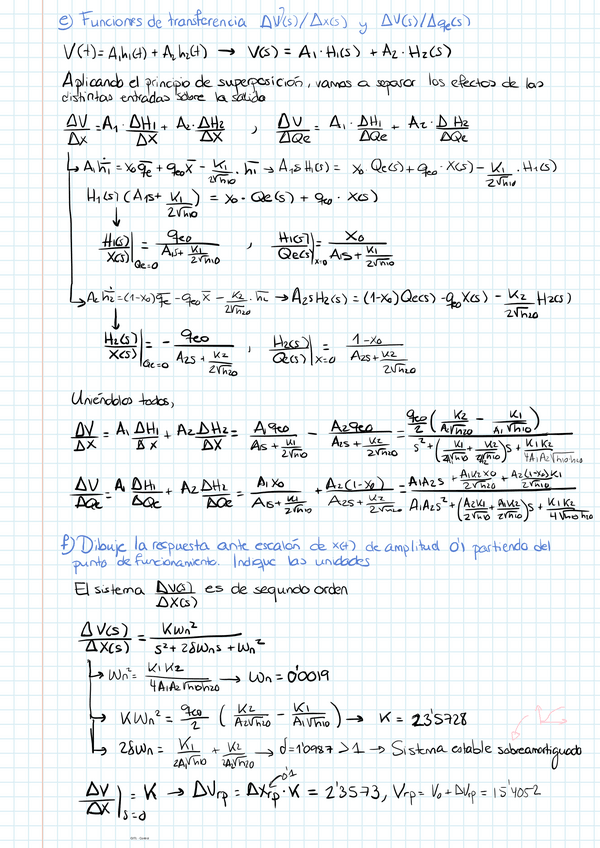 e) Funciones de transferencia ΔV(s)/Δx(s) y ΔV(s)/Δqe(s)
V(t) = A₁h₁(t) + A₂h₂(t) → V(s) = A₁·H₁(s) + A₂·H₂(s)
Aplicando el principio de superposición, vamos a separar los efectos de las
distintas entradas sobre la salida
ΔV/ΔX = A₁·ΔH₁/ΔX + A₂·ΔH₂/ΔX , ΔV/ΔQe = A₁·ΔH₁/ΔQe + A₂·ΔH₂/ΔQe
↳ A₁ḣ₁ = x₀q̄e + qe0x̄ - K₁/2√h10 · h̄₁ → A₁sH₁(s) = x₀·Qe(s) + qe0·X(s) - K₁/2√h10 · H₁(s)
H₁(s)(A₁s + K₁/2√h10) = x₀·Qe(s) + qe0·X(s)
↓
H₁(s)/X(s)|Qe=0 = qe0/(A₁s + K₁/2√h10) , H₁(s)/Qe(s)|X=0 = X₀/(A₁s + K₁/2√h10)
↳ A₂ḣ₂ = (1-x₀)q̄e - qe0x̄ - K₂/2√h20 · h̄₂ → A₂sH₂(s) = (1-x₀)Qe(s) - qe0X(s) - K₂/2√h20 H₂(s)
↓
H₂(s)/X(s)|Qe=0 = - qe0/(A₂s + K₂/2√h20) , H₂(s)/Qe(s)|X=0 = (1-x₀)/(A₂s + K₂/2√h20)
Uniéndolos todos,
ΔV/ΔX = A₁ΔH₁/ΔX + A₂ΔH₂/ΔX = A₁qe0/(A₁s + K₁/2√h10) - A₂qe0/(A₂s + K₂/2√h20) = qe0/2 (K₂/A₂√h20 - K₁/A₁√h10)/(s² + (K₁/2A₁√h10 + K₂/2A₂√h20)s + K₁K₂/4A₁A₂√h10h20)
ΔV/ΔQe = A₁ΔH₁/ΔQe + A₂ΔH₂/ΔQe = A₁X₀/(A₁s + K₁/2√h10) + A₂(1-x₀)/(A₂s + K₂/2√h20) = (A₁A₂s + A₁K₂X₀/2√h20 + A₂(1-x₀)K₁/2√h10)/(A₁A₂s² + (A₂K₁/2√h10 + A₁K₂/2√h20)s + K₁K₂/4√h10h20)
f) Dibuje la respuesta ante escalón de x(t) de amplitud 0'1 partiendo del
punto de funcionamiento. Indique las unidades
El sistema ΔV(s)/ΔX(s) es de segundo orden
ΔV(s)/ΔX(s) = Kωn²/(s² + 2δωns + ωn²)
↳ ωn² = K₁K₂/4A₁A₂√h10h20 → ωn = 0'0019
↳ Kωn² = qe0/2 (K₂/A₂√h20 - K₁/A₁√h10) → K = 23'5728
↳ 2δωn = K₁/2A₁√h10 + K₂/2A₂√h20 → δ = 1'0987 > 1 → Sistema estable sobreamortiguado
ΔV/ΔX)s=0 = K → ΔVrp = ΔXrp·K = 2'3573, Vrp = V₀ + ΔVrp = 15'4052
0'1